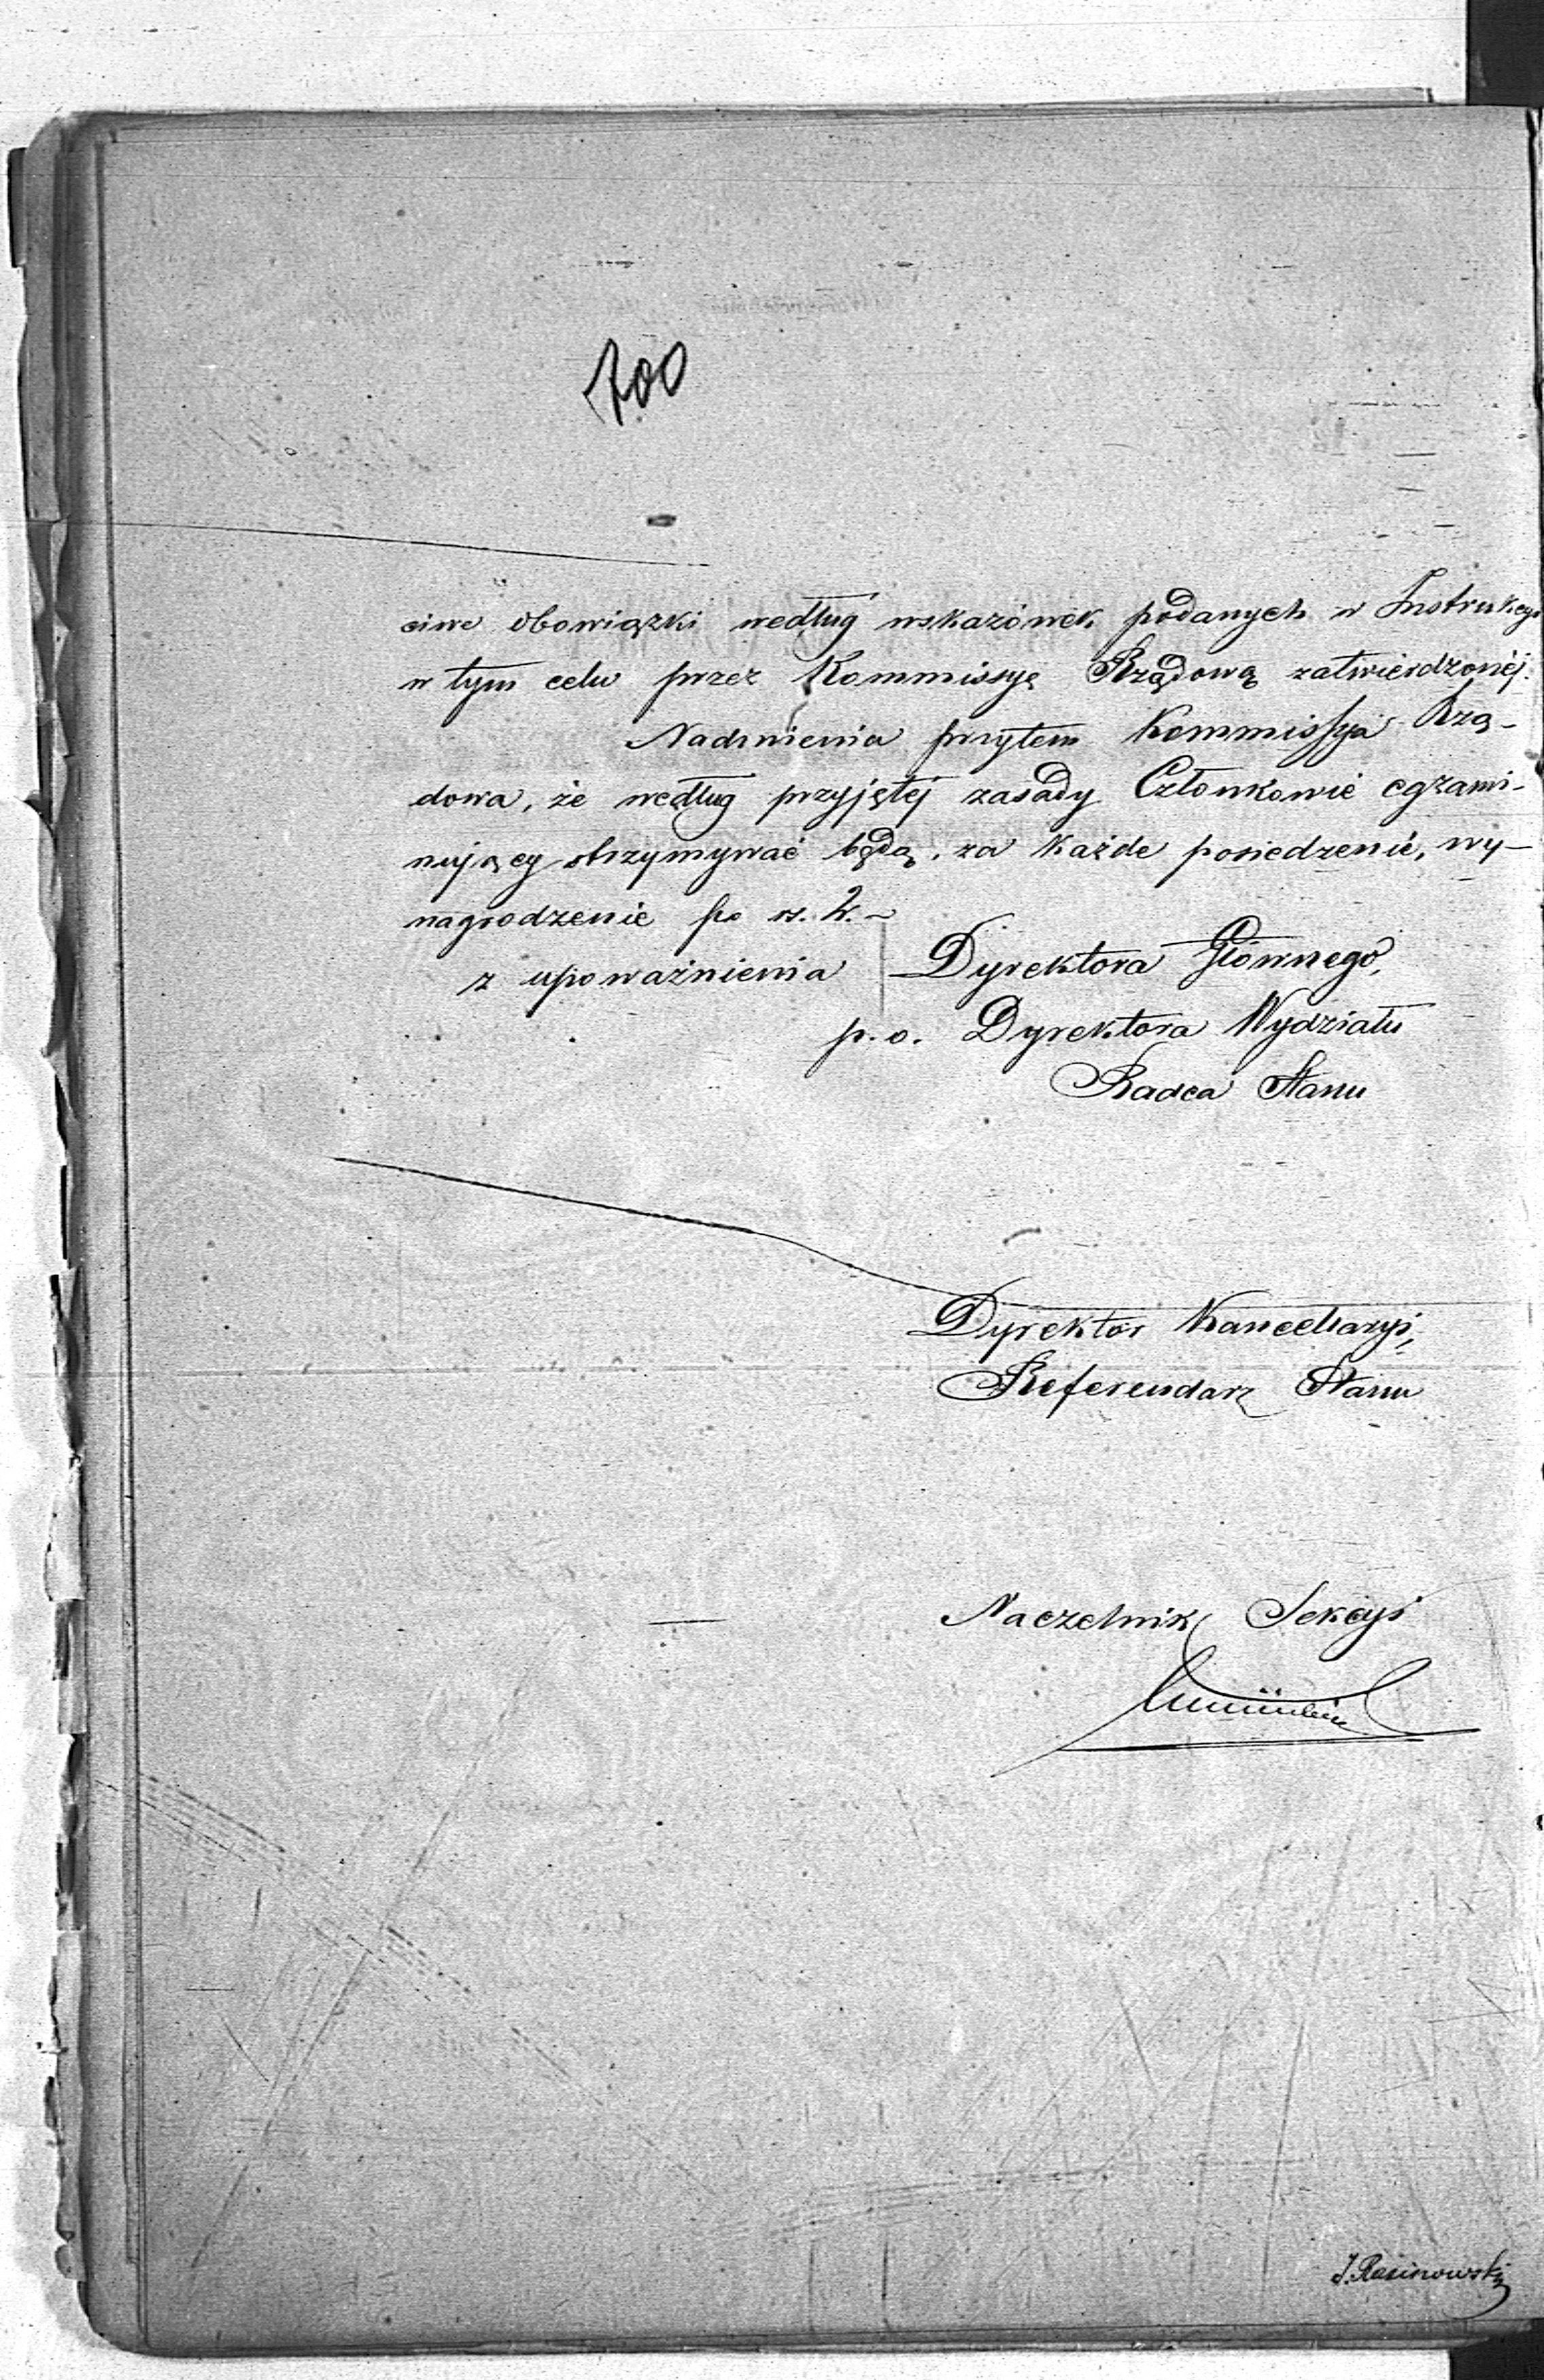 700
ciwe obowiązki według wskazówek podanych w Instrukcyi
w tym celu przez Kommissyę Rządową zatwierdzonéj.
Nadmienia przytem Kommissya Rzą-
dowa, że według przyjętej zasady Członkowie egzami-
nujący otrzymywać będą, za każde posiedzenie, wy-
nagrodzenie po rs. 2.
z upoważnienia Dyrektora Głównego,
p. o. Dyrektora Wydziału
Radca Stanu
Dyrektor Kancellaryi,
Referendarz Stanu
Naczelnik Sekcyi
J. Rasinowski